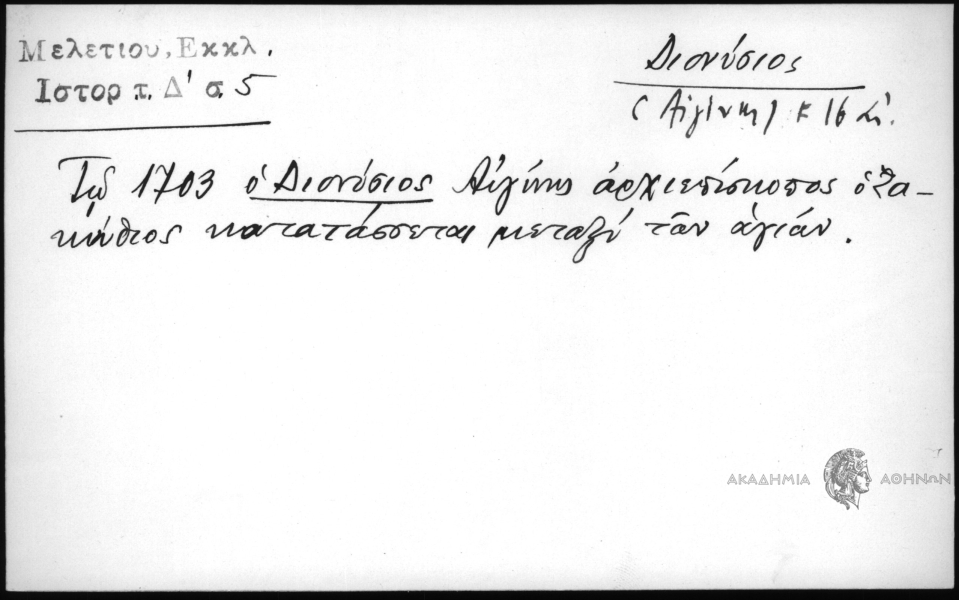 Μελετιου, Εκκλ.
Ιστορ τ. Δ' σ. 5
Διονύσιος
(Αἰγίνης)
16
Τῷ 1703 ὁ Διονύσιος Αἰγίνης ἀρχιεπίσκοπος ὁ Ζα-
κύνθιος κατατάσσεται μεταξύ τῶν ἁγίων.
ΑΚΑΔΗΜΙΑ ΑΘΗΝΩΝ